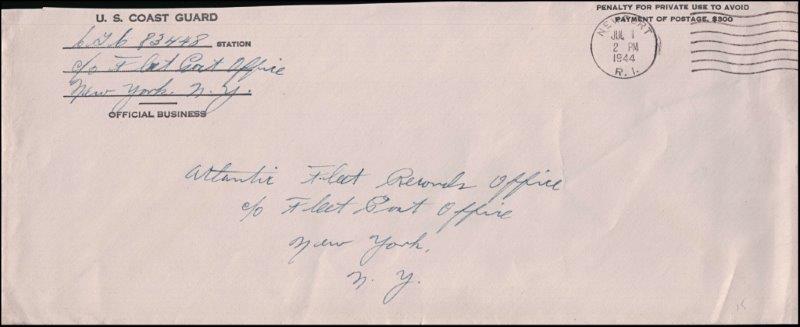 U. S. COAST GUARD
83448 STATION
c/o Fleet Post Office
New York, N. Y.
OFFICIAL BUSINESS
PENALTY FOR PRIVATE USE TO AVOID
PAYMENT OF POSTAGE, $300
NEWPORT
JUL 1
2 PM
1944
R. I.
Atlantic Fleet Records Office
c/o Fleet Post Office
New York,
N. Y.